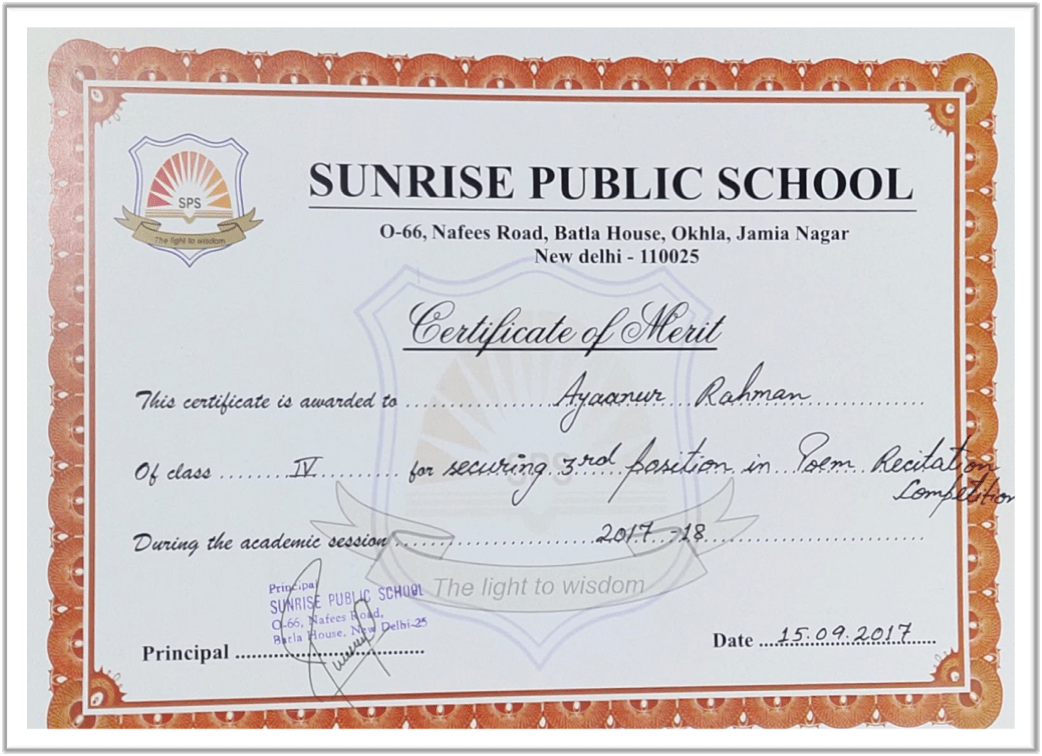 SPS
The light to wisdom
SUNRISE PUBLIC SCHOOL
O-66, Nafees Road, Batla House, Okhla, Jamia Nagar
New delhi - 110025
Certificate of Merit
This certificate is awarded to Ayaanur Rahman
Of class IV for securing 3rd position in Poem Recitation
Competition
SPS
During the academic session 2017-18
The light to wisdom
Principal
SUNRISE PUBLIC SCHOOL
O-66, Nafees Road,
Batla House, New Delhi-25
Principal
Date 15.09.2017